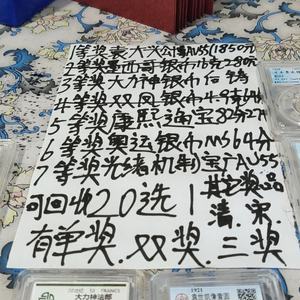 1等奖袁大头公博AU55(1850元
2等奖墨西哥银币16克280元
3等奖大力神银币后铸
4等奖双凤银币4.9克64分
5等奖康熙通宝82分27元
6等奖奥运银币MS64分
7等奖光绪机制宝广AU55
可回收20选1 其它奖品
清.宋.
有单奖.双奖.三奖
50 FRANCS
大力神法郎
1921